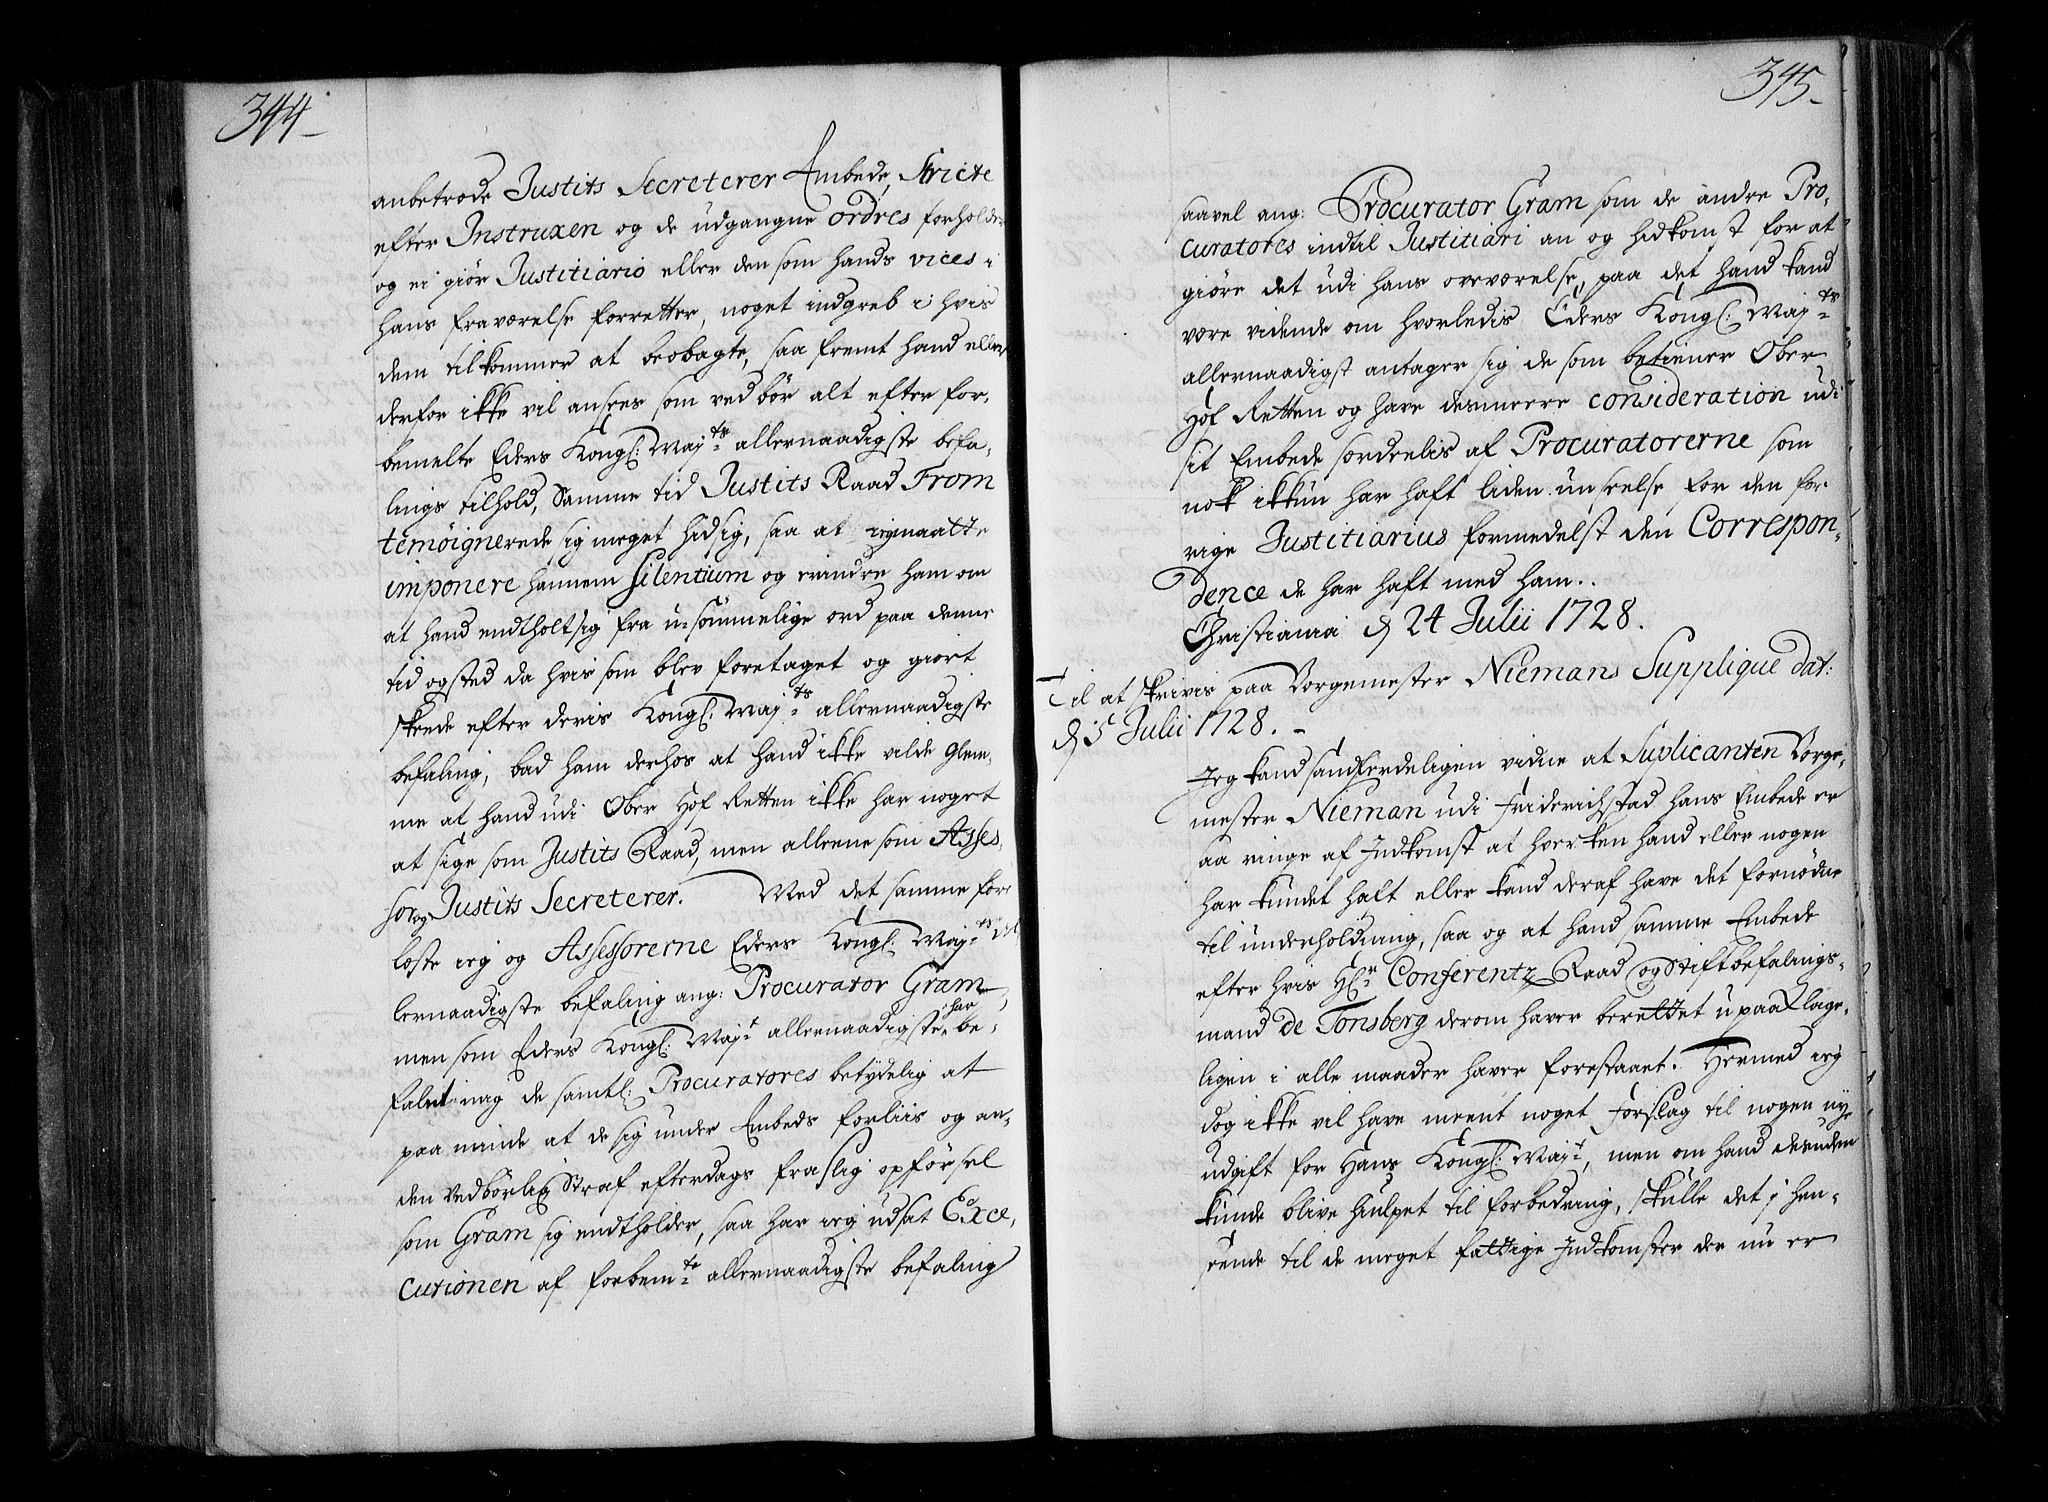 344
anbetrode Justits Secreterer Embede, Stricte
efter Instruxen og de udgangne ordres forholder
og ei giör Justitiario eller den som hands vices i
hans fraværelse forretter, noget indgreb i hvis
dem tilkommer at beobagte, saa fremt hand eller
derfor ikke vil ansees som ved bör alt efter for-
bemelte Eders Kongl: Maj:ts allernaadigste befa-
lings tilhold, Samme tid Justits Raad From
temöignerede sig meget hidsig, saa at ieg maatte
imponere hannem Silentium og erindre ham om
at hand endtholt sig fra u-sömmelige ord paa denne
tid og sted da hvis som blev foretaget og giort
skeede efter deris Kongl: Maj:ts allernaadigste
befaling, bad ham derhos at hand ikke vilde glem-
me at hand udi Ober Hof Retten ikke har noget
at sige som Justits Raad, men alleene som Asses-
sor og Justits Secreterer. Med det samme for-
læste ieg og Assessorerne Eders Kongl: Maj:ts al-
lernaadigste befaling ang: Procurator Gram,
men som Eders Kongl: May:t allernaadigste har be-
falet mig de samtl: Procuratores betydelig at
paaminde at de sig under Embeds forliis og an-
den vedbörlig Straf efterdags fra slig opförsel
som Gram sig endtholder, saa har ieg udsat Exce-
cutionen af forbem:te allernaadigste befaling
345
saavel ang: Procurator Gram som de andre Pro-
curatores indtil Justitiari an og hidkomst for at
giöre det udi hans overværelse, paa det hand kand
være vidende om hvorledis Eders Kongl: Maj:ts
allernaadigst antager sig de som betiener Ober
Hof Retten og have desmeere consideration udi
sit Embede særdeelis af Procuratorerne som
nok ikkun har haft liden unseelse for den for-
rige Justitiarius formedelst den Correspon-
dence de har haft med ham.
Christiania d 24 Julii 1728.
Til at skrivis paa Borgemester Niemans Supplique dat:
d 5 Julii 1728.
Jeg kand sandferdeligen vidne at Suplicanten Borge-
mester Nieman udi Friderichstad hans Embede er
saa ringe af Indkomst at hverken hand eller nogen
har kundet haft eller kand deraf have det fornödne
til underholdning, saa og at hand samme Embede
efter hvis Hr: Conferentz Raad og Stiftbefalings-
mand de Tonsberg derom haver berettet upaaklage-
ligen i alle maader haver forestaaet. Hermed ieg
dog ikke vil have meent noget Forslag til nogen nye
udgift for Hans Kongl: May:t, men om hand desuden
kunde blive hiulpet til forbedring, skulle det i hen-
seende til de meget fattige Indkomster der nu er